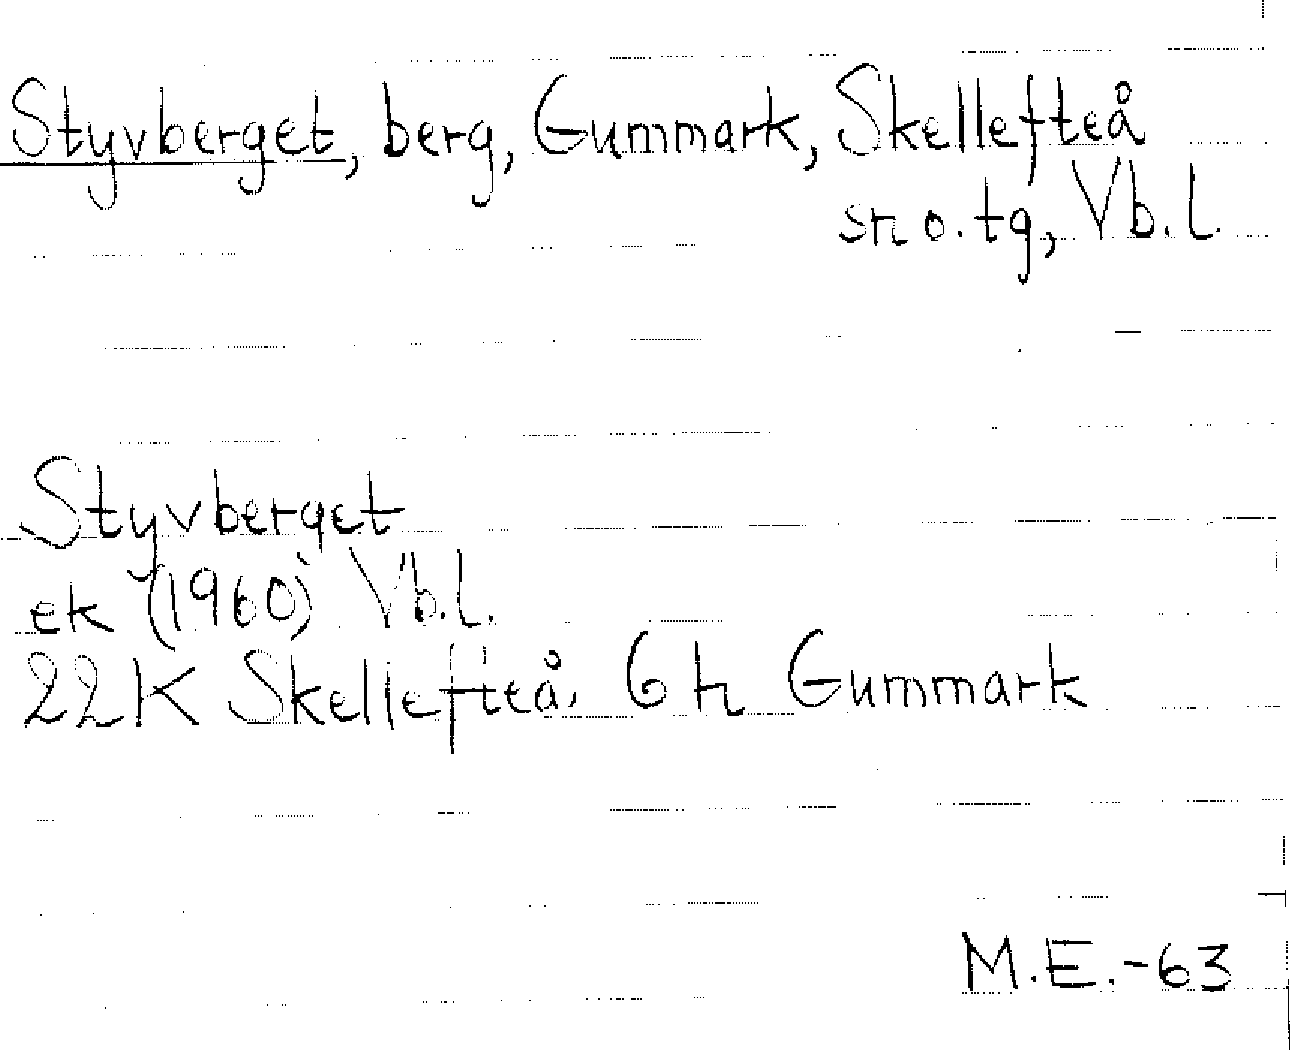 Styvberget, berg, Gummark, Skellefteå
sn o. tg, Vb. l.
Styvberget
ek (1960) Vb. l.
22 K Skellefteå, 6 h Gummark
M.E.-63